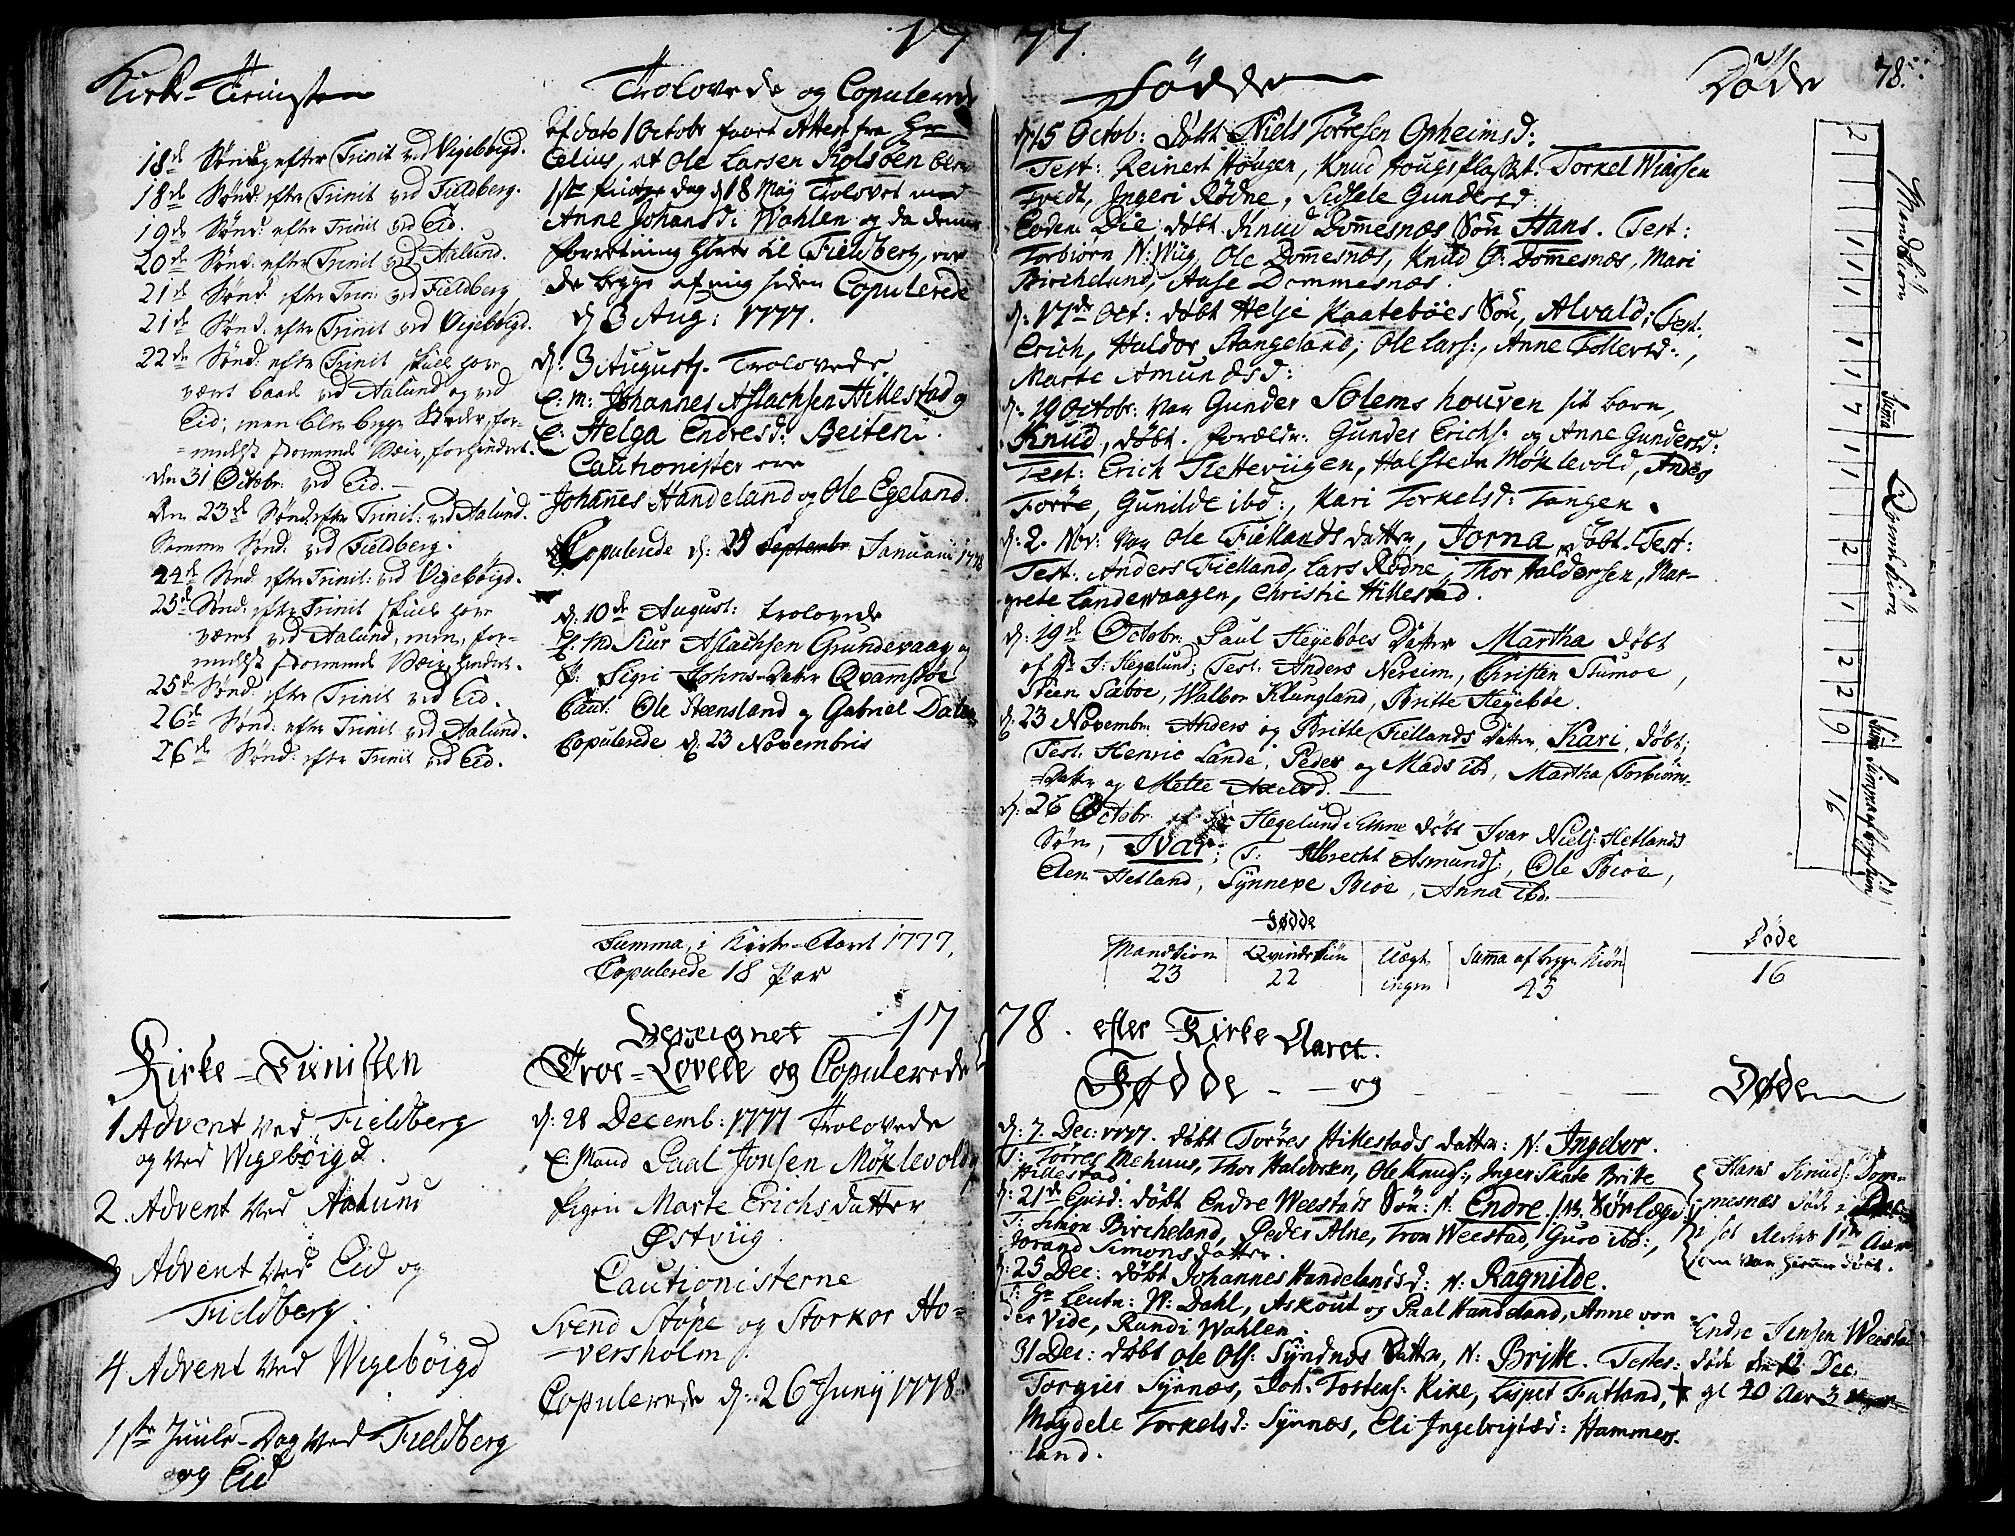 1777.
78.
Kirke-Tienisten
18de Sønd: efter Trinit ved Vigebøigd.
18de Sønd: efter Trinit ved Fieldberg.
19de Sønd: efter Trinit ved Eid.
20de Sønd: efter Trinit ved Aalund.
21de Sønd: efter Trin: ved Fieldberg
21de Sønd: efter Trinit ved Vigebøigd.
22de Sønd: efter Trinit skule hove
vært baade ved Aalund og ved
Eid; men blev begge Stæder, for-
medelst stormende Veir, forhindret.
den 31 Octobr: ved Eid.
den 23de Sønd: efter Trinit: ved Aalund.
Samme Sønd: ved Fieldberg.
24de Sønd: efter Trinit: ved Vigebøigd.
25de Sønd: efter Trinit skule hove
vært ved Aalund, men, for-
medelst stormende Veir, hindret.
25de Sønd: efter Trinit ved Eid.
26de Sønd: efter Trinit ved Aalund.
26de Sønd: efter Trinit ved Eid.
Trolovede og Copulerede
af dato 1 Octobr faaet Attest fra Hr
Celius, at Ole Larsen Kolsøen blev
1ste Pintze dag d: 18 Maÿ Trolovet med
Anne Johansd: Wahlen og da denne
forretning hørte til Fieldberg, ere
de begge af mig siden Copulerede
d: 3 Aug: 1777.
d: 3 Augusti. Trolovede
E: M: Johannes Aslachsen Hillestad og
E: Helga Endresd: Beiten.
Cautionister ere
Johannes Handeland og Ole Egeland.
Copulerede d: 25 Septembr Januarii 1778
d: 10de August: trolovede
U: M: Siur Aslachsen Grundevaag og
P: Sigri Johns-dater Qvamsøe
Caut: Ole Steensland og Gabriel Dalen
Copulerede d: 23 Novembris
Summa, i Kirke-Aaret 1777,
Copulerede 18 Par
Fødde
d: 15 Octob: døbt Niels Tørresen Opheimsd:
Test: Reinert Hougen, Knud Hougspladset: Torkel Wiassen
Tvedt, Ingeri Rødne, Sidsele Gundersd:
Eodem Die, døbt Knud Dommesnæs Søn Hans. Test:
Torbiørn N: Wiig, Ole Dommesnæs, Knud O: Dommesnæs, Mari
Bircheland, Aase Dommesnæs.
d: 17de Oct: døbt Helje Kaatebøes Søn, Alvald; Test:
Erich, Haldor Stangeland; Ole Lars:, Anne Tollevsd:,
Marte Amundsd:
d: 19 Octobr: var Gunder Solemshouven sit barn,
Knud, døbt. forældr: Gunder Erichs: og Anne Gundersd:
Test: Erich Slettevigen, Halstein Møklevold, Anders
Forøe, Gunilde ibd:, Kari Torkelsd: Tangen.
d: 2. Nov: var Ole Fiellands datter, Jorna, døbt. Test:
Test: Anders Fielland, Lars Rødne, Thor Haldorsen, Mar-
grete Landevaagen, Christie Hillestad.
d: 19de Octobr: Paul Heÿebøes Datter Martha døbt
af Hr J: Hegelund; Test: Anders Nereim, Christen Stumoe,
Steen Sæbøe, Walbor Klungland, Britte Heÿebøe.
d: 23 Novembr: Anders og Britte Fiellands datter, Kari, døbt;
Test: Henric Lande, Peder og Mads ibd, Martha Torbiørns-
datter og Mette Axelsd.
d: 26 Octobr: af Hr Hegelund i Ethne døbt Ivar Niels: Hetlands
Søn, Ivar; T: Albrecht Asmunds:, Ole Bioe,
Elen Hetland, Synneve Bioe, Anna ibd.
Fødde
Mandkion Qvindekiøn Uægte Suma af begge Kiøn
23 22 ingen 45
Døde
Mandkiøn
2 1 1 1 1 1 1 7
Suma
Qvindekiøn
1 1 2 1 2 2 9
Sum
Suma af begge kiøn
16
Døde
16
Beregnet 1778. efter Kirke Aaret.
Kirke-Tienisten
1 Advent ved Fieldberg
og ved Wigebøigd.
2. Advent ved Aalund
3 Advent ved Eid og
Fieldberg.
4 Advent ved Wigebøigd
1ste Juule-Dag ved Fieldberg
og Eid
Troe-Lovede og Copulerede
d: 28 Decemb: 1777 Trolovede
E: Mand Paal Jonsen Møklevold og
Pigen Marte Erichsdatter
Østviig.
Cautionisterne
Svend Støpe og Storkor Ho-
versholm
Copulerede d: 26 Junÿ 1778.
Fødde og
d: 7 Dec: 1777. døbt Tørres Hillestads datter: N: Ingebor.
T: Tørres Mehuus, Thor Haldorsen, Ole Knuds:, Inger Skate Britte
Hillestad.
d: 21de Ejusd: døbt Endre Weestads Søn: N: Endre.
T: Simon Bircheland, Peder Alne, Tron Weestad, Guro ibd:,
Jorand Simonsdatter.
d: 25 Dec: døbt Johannes Handelandsd: N: Ragnilde.
T: Hr Leutn: W: Dahl, Askout og Paal Handeland, Anne von
der Vide, Randi Wahlen.
31 Dec: døbt Ole Ols: Synnæs datter, N: Britte. Testes:
Torgier Synnæs, Joh: Tostens: Kike, Lispet Futland,
Magdele Torkelsd: Synnæs, Eli Ingebrigtsd: Hammers-
land.
Døde
Hans Knuds: Dom-
mesnæs døde i
sit Alders 1ste Aar
som var hiemmedøbt.
Endre Jensen Weestad
døde den 12 Dec:
gl 20 Aar 3